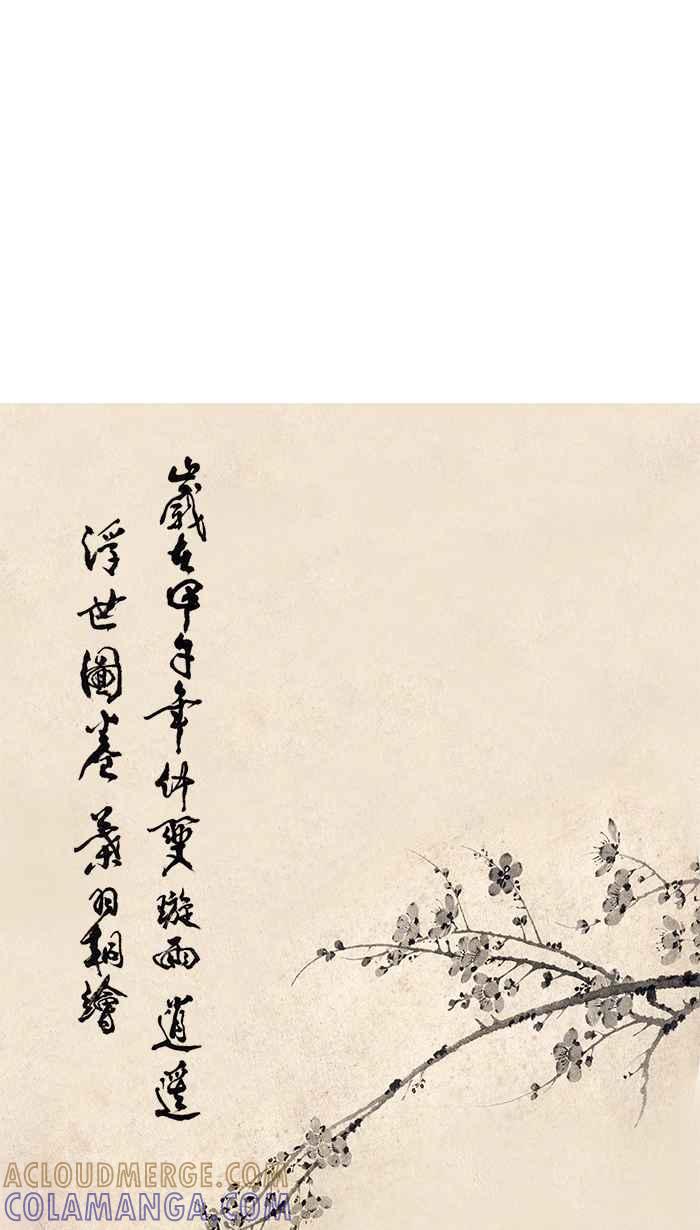 歲在甲午年 璇雨 逍遥
浮世圖卷 葉羽桐繪
ACLOUDMERGE.COM
COLAMANGA.COM